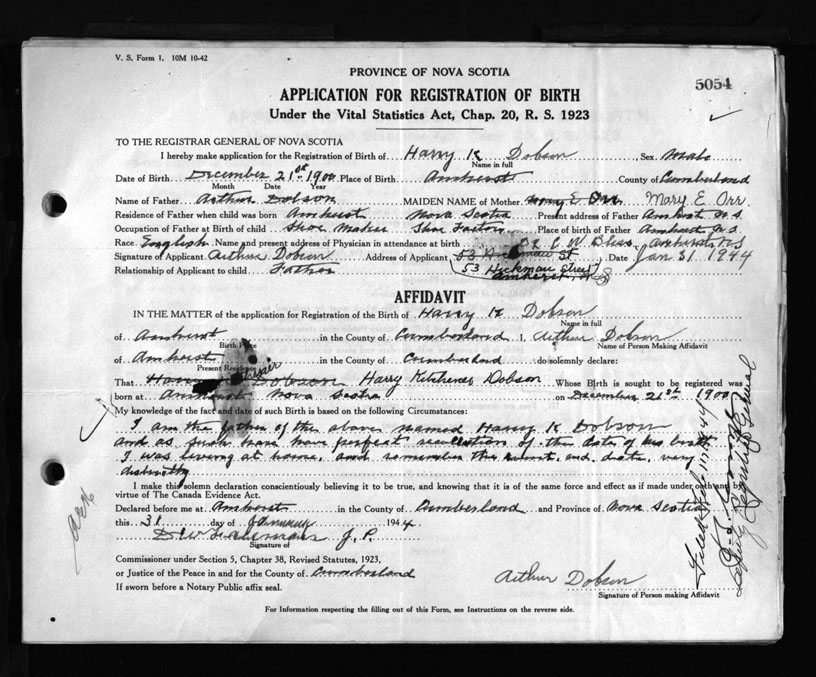 V. S. Form 1. 10M 10-42
PROVINCE OF NOVA SCOTIA
5054
APPLICATION FOR REGISTRATION OF BIRTH
Under the Vital Statistics Act, Chap. 20, R. S. 1923
TO THE REGISTRAR GENERAL OF NOVA SCOTIA
I hereby make application for the Registration of Birth of Harry K Dobson Sex Male
Name in full
Date of Birth December 21st 1900 Place of Birth Amherst County of Cumberland
Month Date Year
Name of Father Arthur Dobson MAIDEN NAME of Mother Mary E Orr Mary E. Orr
Residence of Father when child was born Amherst Nova Scotia Present address of Father Amherst N.S.
Occupation of Father at Birth of Child Shoe Maker Shoe Factory Place of Birth of Father Amherst N.S.
Race English Name and present address of Physician in attendance at birth Dr C. W. Bliss Amherst N.S
Signature of Applicant Arthur Dobson Address of Applicant 53 Hickman St Date Jan 31 1944
Relationship of Applicant to child Father 53 Hickman Street
Amherst, N.S
AFFIDAVIT
IN THE MATTER of the application for Registration of the Birth of Harry K Dobson
Name in full
of Amherst in the County of Cumberland I, Arthur Dobson
Birth Place Name of Person Making Affidavit
of Amherst in the County of Cumberland do solemnly declare:
Present Residence
That Harry Dobson Harry Kitchener Dobson Whose Birth is sought to be registered was
born at Amherst Nova Scotia on December 21st 1900
My knowledge of the fact and date of such Birth is based on the following Circumstances:
I am the father of the above named Harry K Dobson
and as such have perfect recollection of the date of his birth
I was living at home, and remember the event and date very
distinctly
I make this solemn declaration conscientiously believing it to be true, and knowing that it is of the same force and effect as if made under oath and by
virtue of The Canada Evidence Act.
Declared before me at Amherst in the County of Cumberland and Province of Nova Scotia
this 31 day of January 1944
J. P.
Signature of
Commissioner under Section 5, Chapter 38, Revised Statutes, 1923,
or Justice of the Peace in and for the County of Cumberland
If sworn before a Notary Public affix seal.
Arthur Dobson
Signature of Person making Affidavit
For Information respecting the filling out of this Form, see Instructions on the reverse side.
Deputy Registrar General